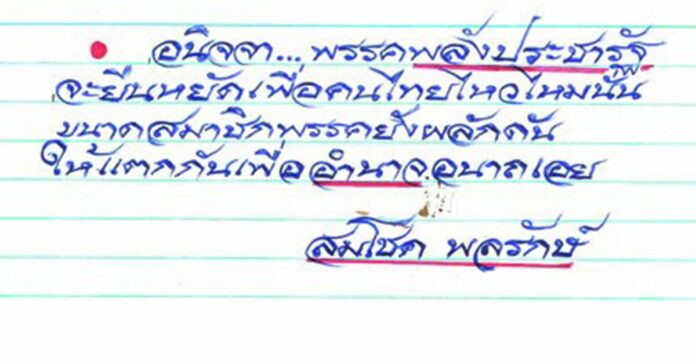 อนิจจา... พรรคพลังประชารัฐ
จะยืนหยัดเพื่อคนไทยไหวไหมนั่น
ขนาดสมาชิกพรรคยังผลักดัน
ให้แตกกันเพื่ออำนาจอนาถเอย
สมโชค พลรักษ์